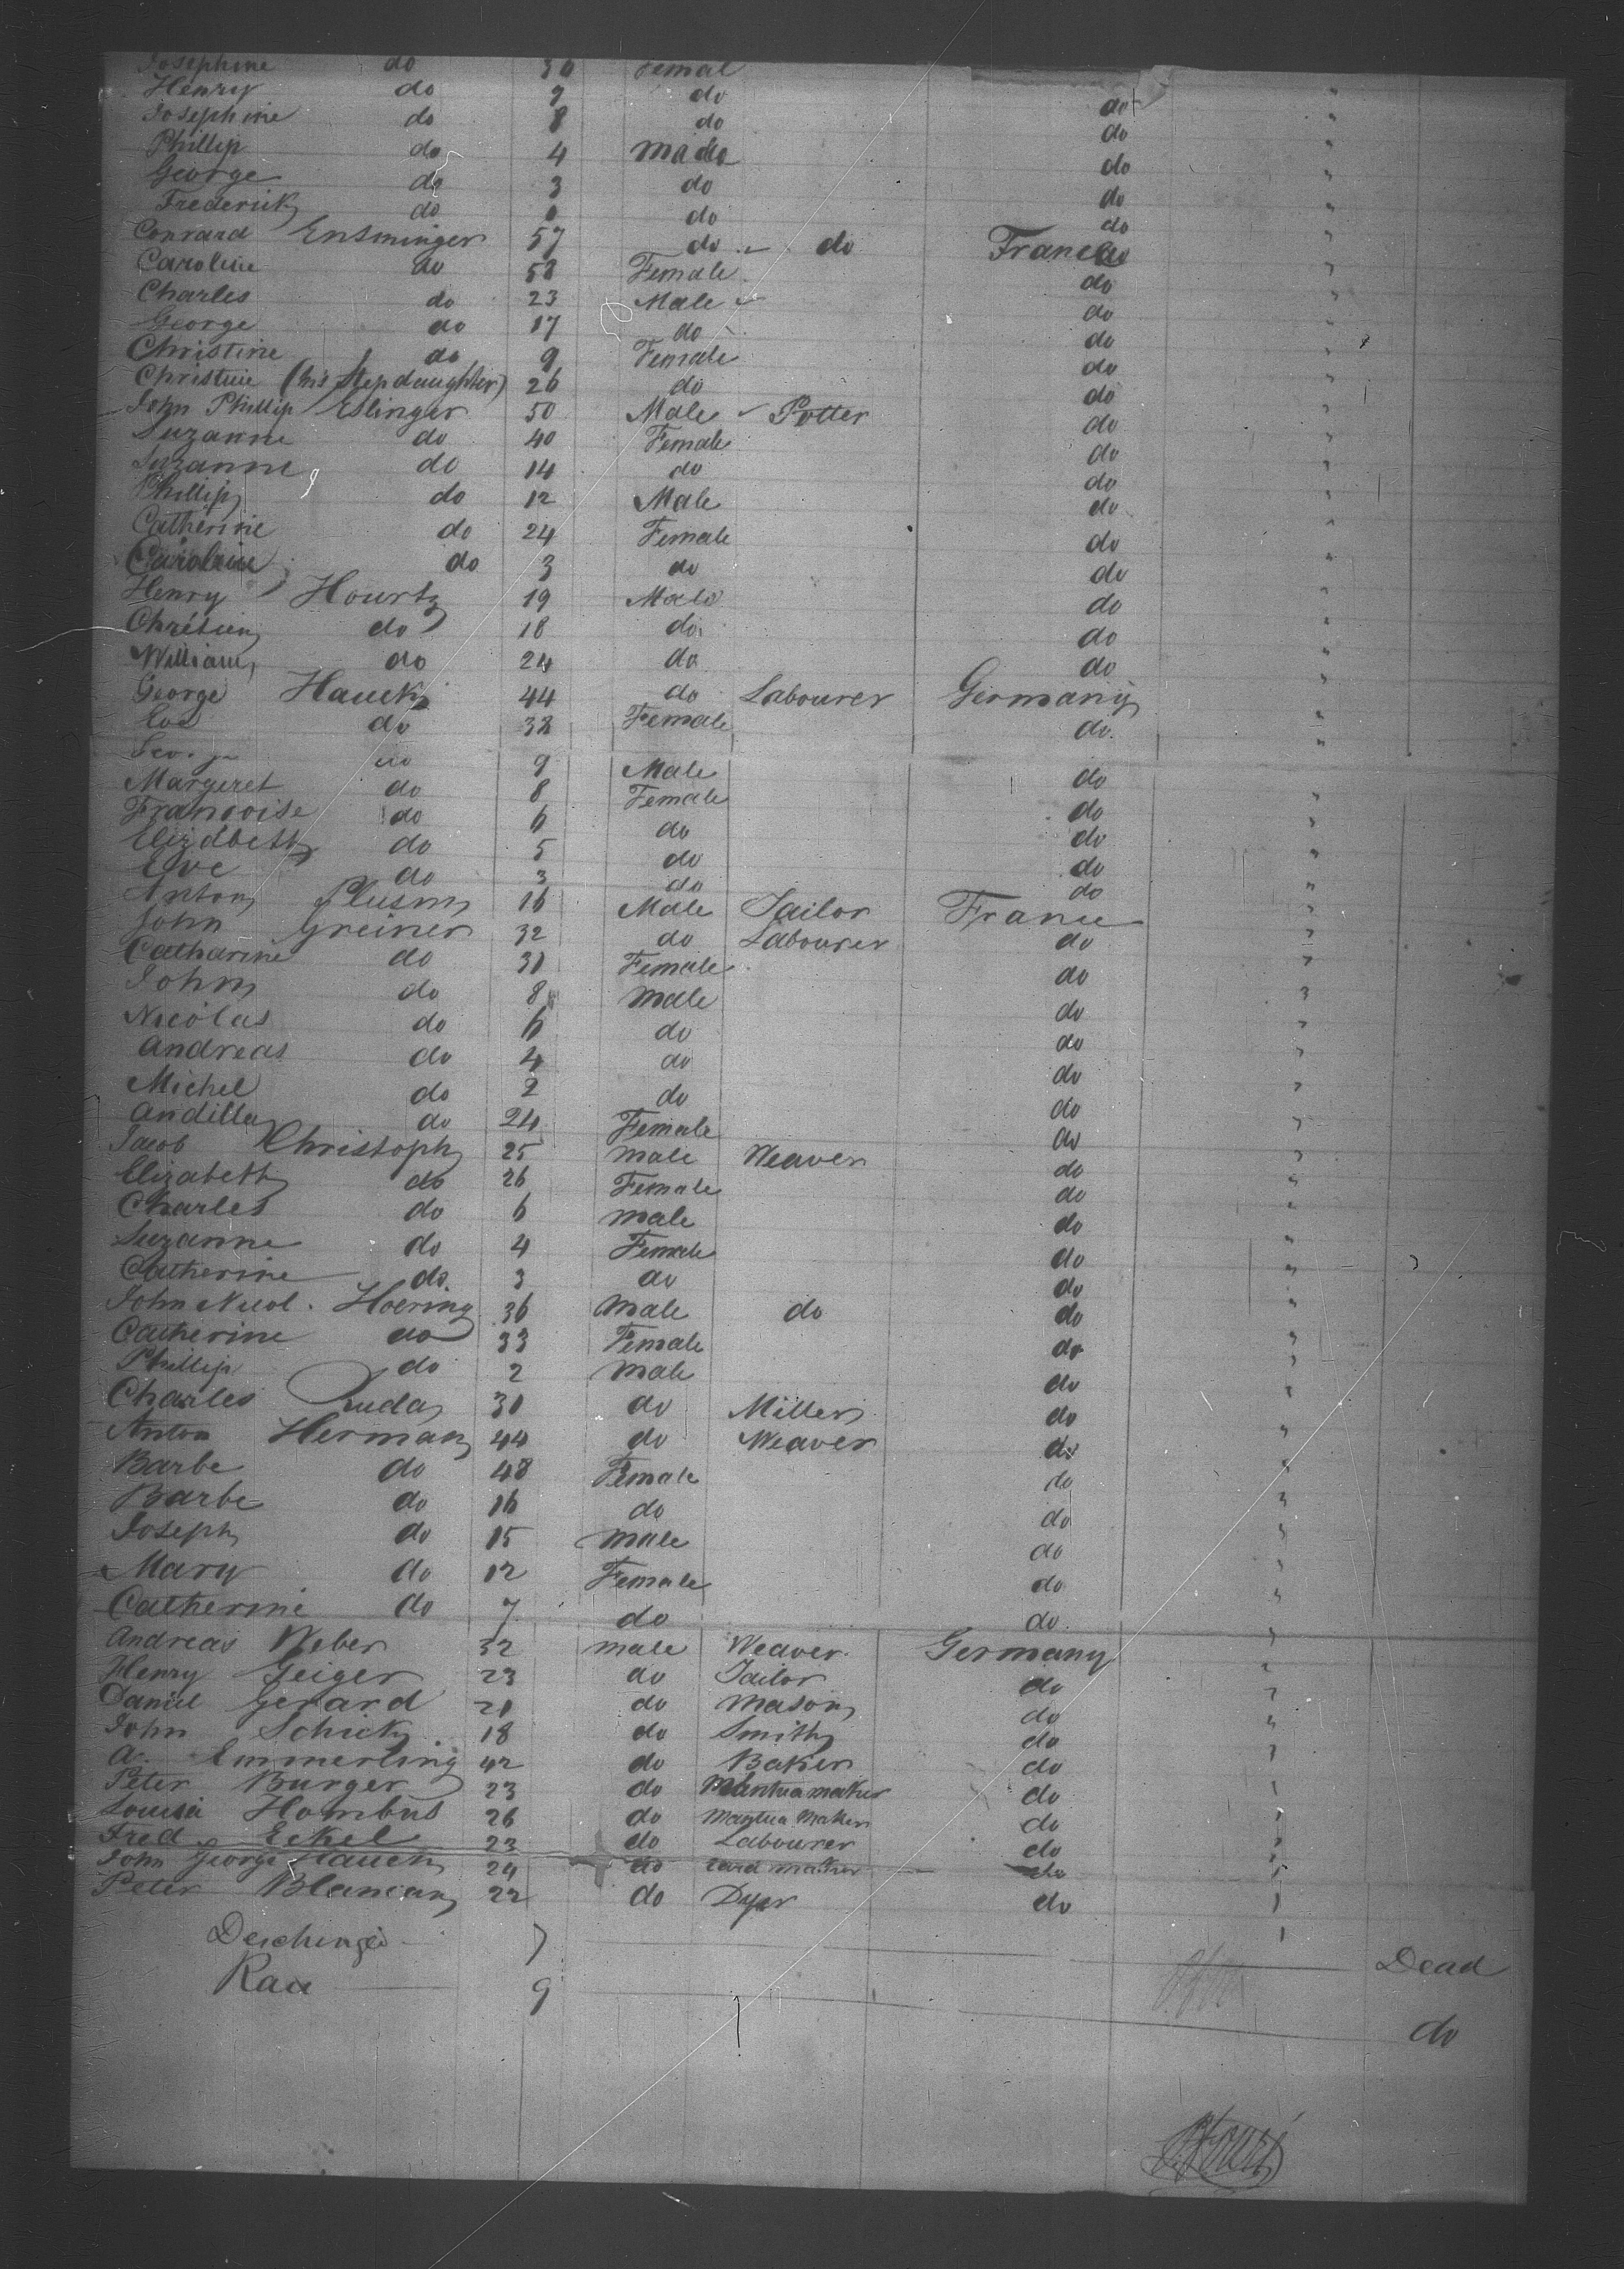 Josephine do 36 Femal
Henry do 9 do do "
Josephine do 8 do do "
Phillip do 4 Mado do "
George do 3 do do "
Frederick do do do "
Conrard Ensminger 57 do do France "
Caroline do 58 Female do "
Charles do 23 Male do "
George do 17 do do "
Christine do 9 Female do "
Christine (his Stepdaughter) 26 do do "
John Phillip Eslinger 50 Male Potter do "
Suzanne do 40 Female do "
Suzanne do 14 do do "
Phillip do 12 Male do "
Catherine do 24 Female do "
Caroline do 3 do do "
Henry Hourtz 19 Male do "
Chrétien do 18 do do "
William do 24 do do "
George Hauck 44 do Labourer Germany "
Eva do 38 Female do "
George do 9 Male do
Margeret do 8 Female do "
Françoise do 6 do do "
Elizabeth do 5 do do "
Eve do 3 do do "
Anton 16 Male Tailor France "
John Greiner 32 do Labourer do "
Catharine do 31 Female do "
John do 8 Male do "
Nicolas do 6 do do "
Andreas do 4 do do "
Michel do 2 do do "
Andilla do 24 Female do "
Jacob Christoph 25 Male Weaver do "
Elizabeth do 26 Female do "
Charles do 6 Male do "
Suzanne do 4 Female do "
Catherine do 3 do do "
John Nicol. Hoering 36 Male do do "
Catherine do 33 Female do "
Phillip do 2 Male do "
Charles 31 do Miller do "
Anton Herman 44 do Weaver do "
Barbe do 48 Female do "
Barbe do 16 do do "
Joseph do 15 Male do "
Mary do 12 Female do "
Catherine do 7 do do "
Andreas Weber 32 Male Weaver Germany "
Henry Geiger 23 do Tailor do "
Daniel Gerard 21 do Mason do "
John Schick 18 do Smith do "
A. Emmerling 42 do Baker do "
Peter Burger 23 do Mantua maker do "
Louisa Hombus 26 do Mantua Maker do "
Fred Eckel 23 do Labourer do "
John George Hauck 24 do card maker do "
Peter Blancan 22 do Dyer do "
Deschinger 7 Dead
Rau 9 do